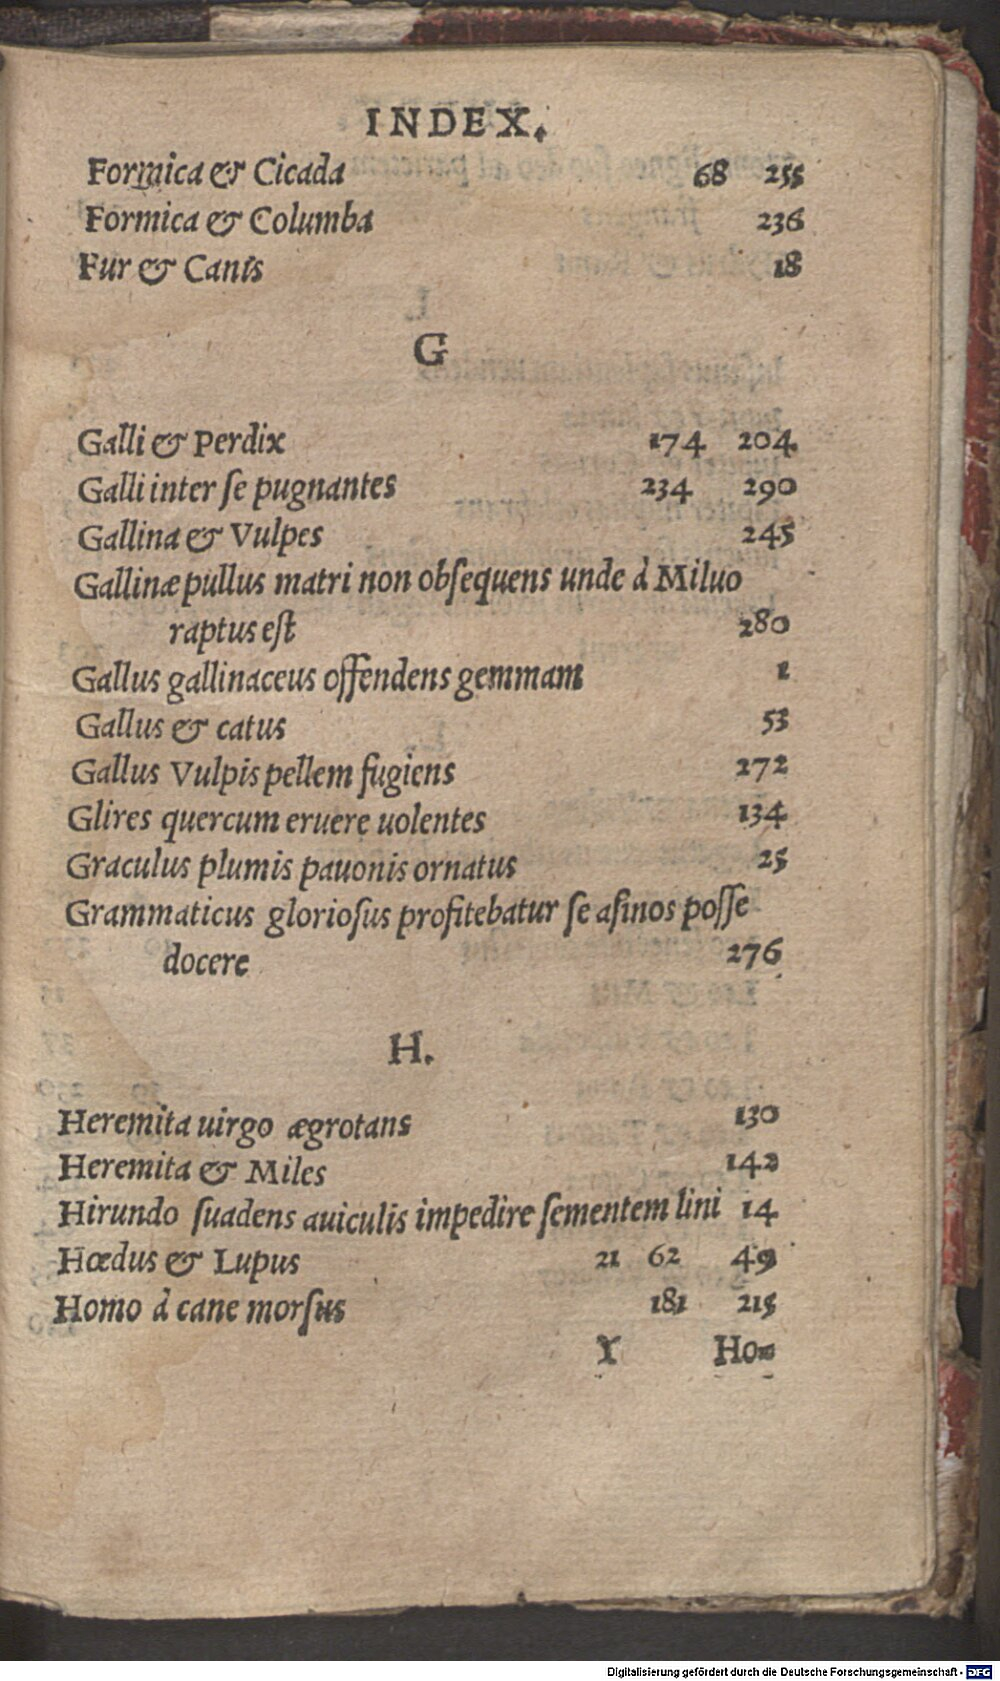 INDEX.
Formica & Cicada 68 255
Formica & Columba 236
Fur & Canis 18
G
Galli & Perdix 174 204
Galli inter ſe pugnantes 234 290
Gallina & Vulpes 245
Gallinæ pullus matri non obſequens unde à Miluo
raptus eſt 280
Gallus gallinaceus offendens gemmam 1
Gallus & catus 53
Gallus Vulpis pellem fugiens 272
Glires quercum eruere uolentes 134
Graculus plumis pauonis ornatus 25
Grammaticus glorioſus profitebatur ſe aſinos poſſe
docere 276
H.
Heremita uirgo ægrotans 130
Heremita & Miles 142
Hirundo ſuadens auiculis impedire ſementem lini 14
Hœdus & Lupus 21 62 49
Homo à cane morſus 181 215
Y Ho=
Digitalisierung gefördert durch die Deutsche Forschungsgemeinschaft - DFG